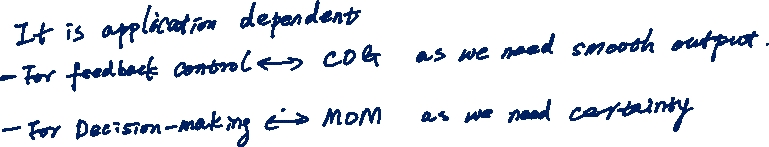 It is application dependent
- For feedback control <-> COG as we need smooth output.
- For Decision-making <-> MOM as we need certainty